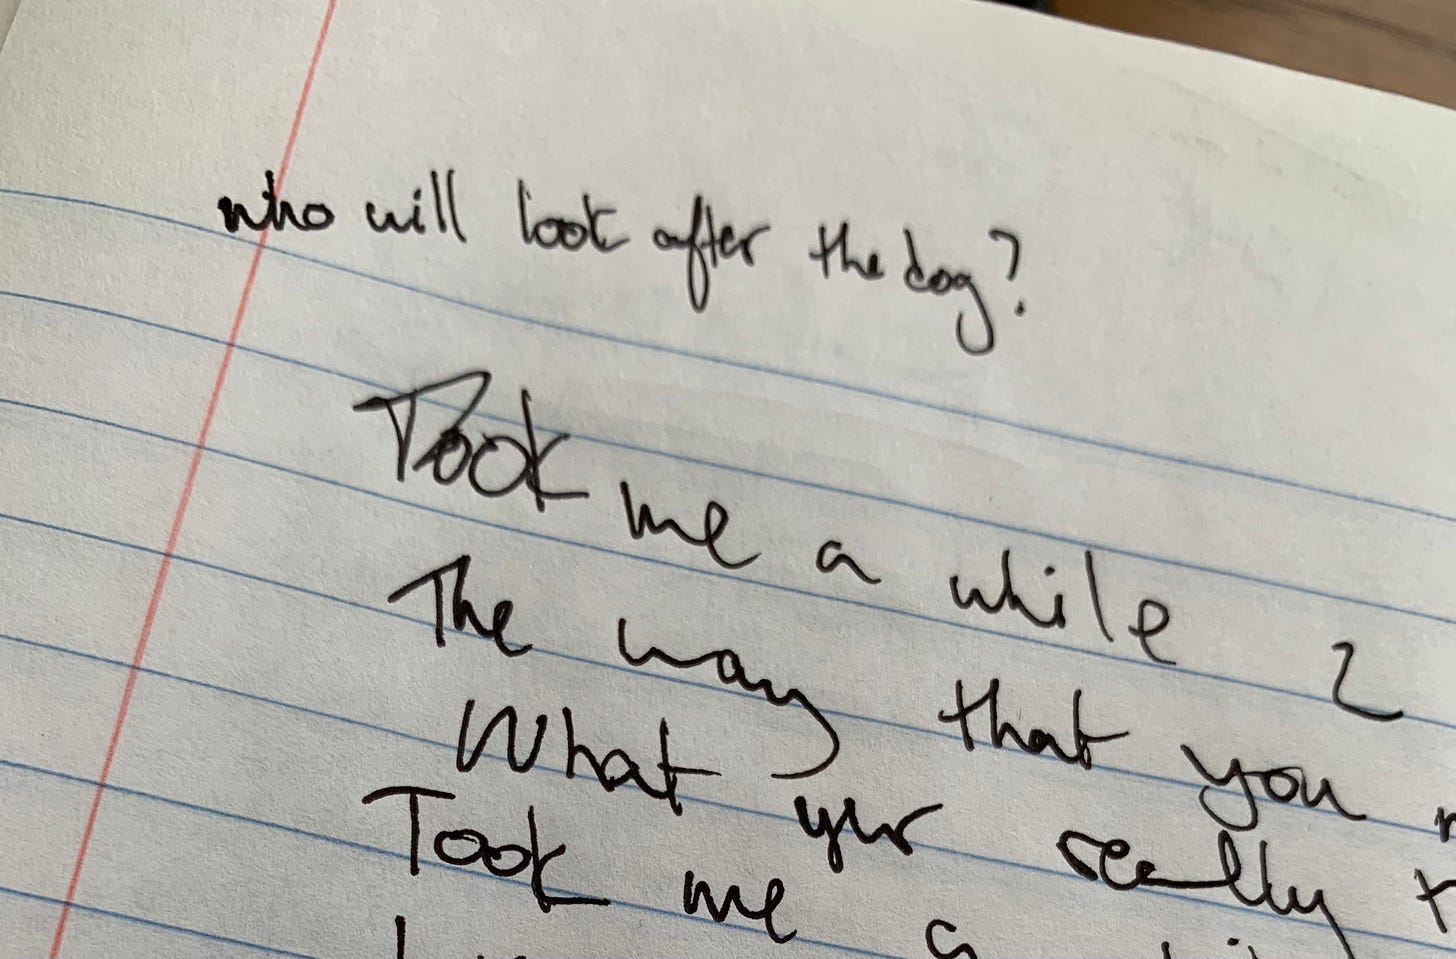 who will look after the dog?
Took me a while 2
The way that you
What yur really
Took me a